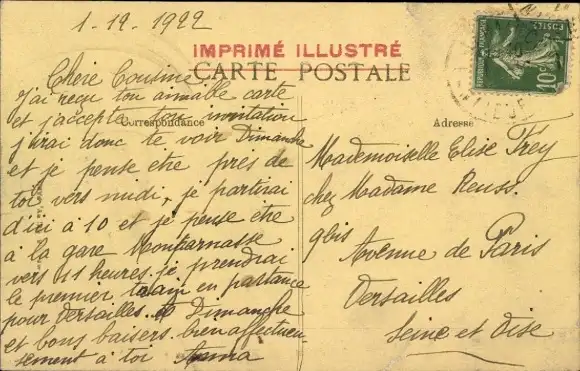 1-12-1922
IMPRIMÉ ILLUSTRÉ
CARTE POSTALE
Correspondance
Adresse
POSTES
REPUBLIQUE FRANÇAISE
10
Chère Cousine
j'ai reçu ton aimable carte
et j'accepte ton invitation
j'irai donc te voir Dimanche
et je pense être près de
toi vers midi, je partirai
d'ici à 10 et je pense être
à la gare Montparnasse
vers 11 heures. je prendrai
le premier train en partance
pour Versailles. à Dimanche
et bons baisers. bien affectueu-
sement à toi Anna
Mademoiselle Elise Frey
chez Madame Reuss.
9bis Avenue de Paris
Versailles
Seine et Oise